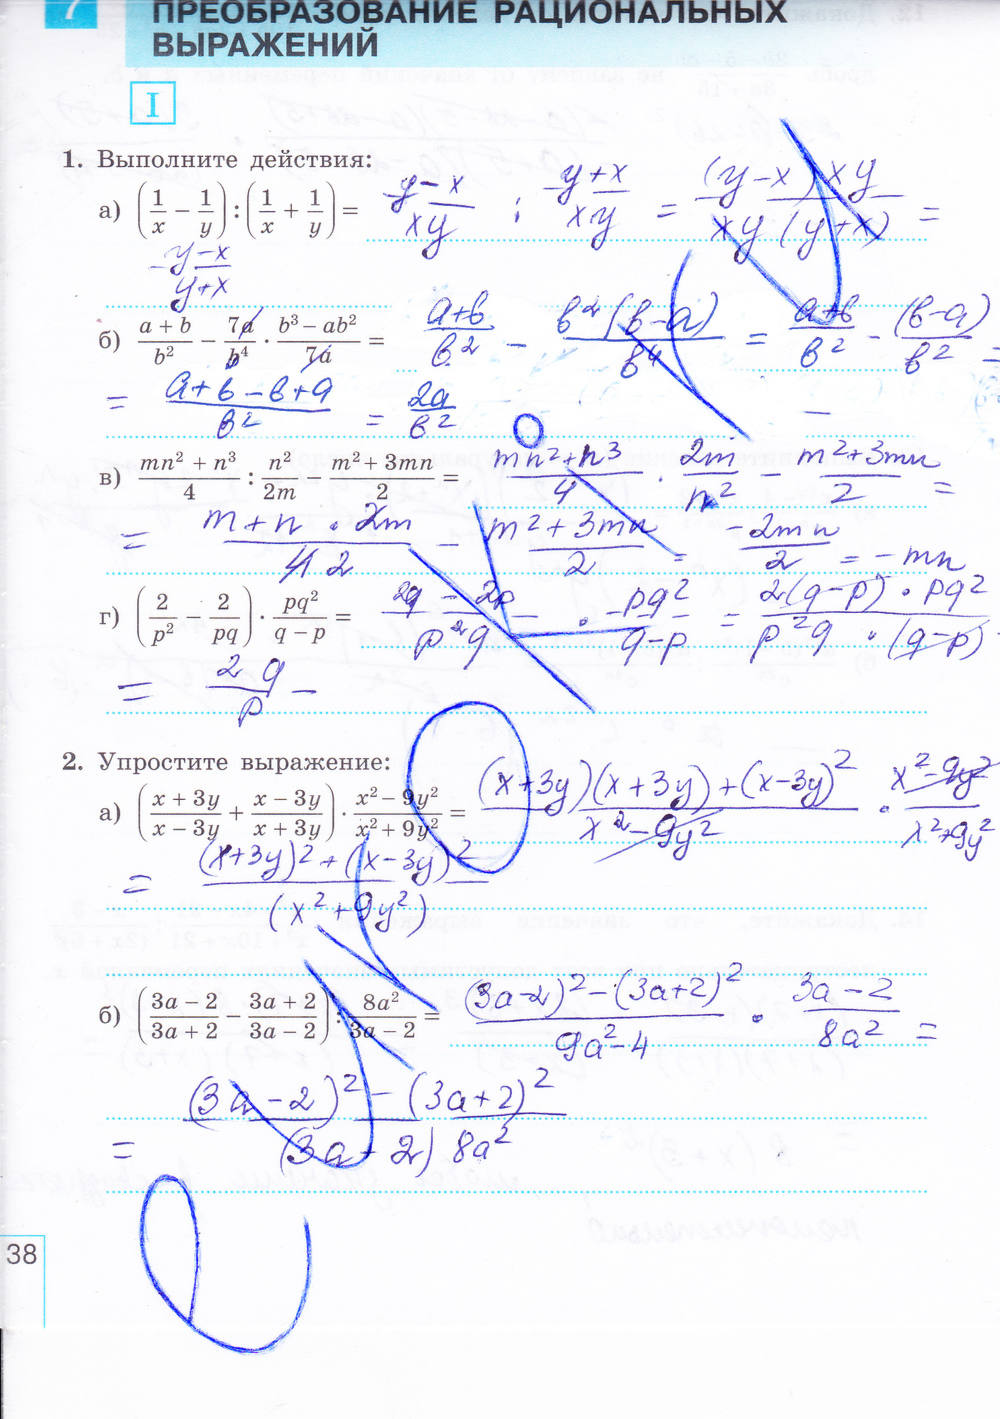 7 ПРЕОБРАЗОВАНИЕ РАЦИОНАЛЬНЫХ
ВЫРАЖЕНИЙ
I
1. Выполните действия:
а) (1/x − 1/y) : (1/x + 1/y) = (y−x)/(xy) : (y+x)/(xy) = (y−x)xy/(xy(y+x)) =
(y−x)/(y+x)
б) (a + b)/b² − 7a/b⁴ · (b³ − ab²)/7a = (a+b)/b² − b²(b−a)/b⁴ = (a+b)/b² − (b−a)/b² =
= (a+b−b+a)/b² = 2a/b²
в) (mn² + n³)/4 : n²/2m − (m² + 3mn)/2 = (mn²+n³)/4 · 2m/n² − (m²+3mn)/2 =
= (m+n · 2m)/(4 2) − (m²+3mn)/2 = −2mn/2 = −mn
г) (2/p² − 2/pq) · pq²/(q − p) = (2q − 2p)/(p²q) · pq²/(q−p) = 2(q−p) · pq²/(p²q · (q−p))
= 2q/p
2. Упростите выражение:
а) ((x + 3y)/(x − 3y) + (x − 3y)/(x + 3y)) · (x² − 9y²)/(x² + 9y²) = ((x+3y)(x+3y)+(x−3y)²)/(x²−9y²) · (x²−9y²)/(x²+9y²)
= ((x+3y)²+(x−3y)²)/(x²+9y²)
б) ((3a − 2)/(3a + 2) − (3a + 2)/(3a − 2)) : 8a²/(3a − 2) = ((3a−2)²−(3a+2)²)/(9a²−4) · (3a−2)/8a² =
= ((3a−2)²−(3a+2)²)/((3a+2)8a²)
38